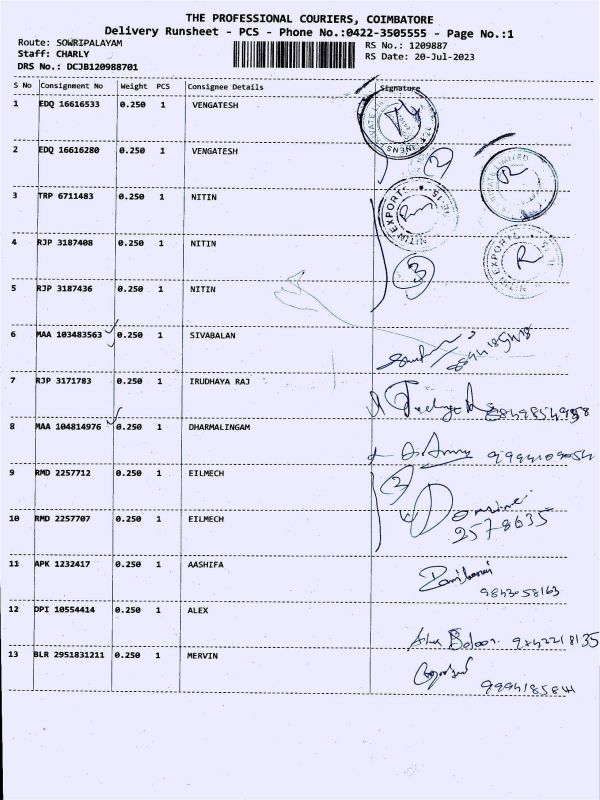 THE PROFESSIONAL COURIERS, COIMBATORE
Delivery Runsheet - PCS - Phone No.:0422-3505555 - Page No.:1
Route: SOWRIPALAYAM
RS No.: 1209887
Staff: CHARLY
RS Date: 20-Jul-2023
DRS No.: DCJB120988701
S No Consignment No Weight PCS Consignee Details Signature
1 EDQ 16616533 0.250 1 VENGATESH
2 EDQ 16616280 0.250 1 VENGATESH
2
3 TRP 6711483 0.250 1 NITIN
NITIN EXPORTS
4 RJP 3187408 0.250 1 NITIN
NITIN EXPORTS
3
5 RJP 3187436 0.250 1 NITIN
6 MAA 103483563 0.250 1 SIVABALAN
7 RJP 3171783 0.250 1 IRUDHAYA RAJ
8 MAA 104814976 0.250 1 DHARMALINGAM
9 RMD 2257712 0.250 1 EILMECH
2
10 RMD 2257707 0.250 1 EILMECH
2578635
11 APK 1232417 0.250 1 AASHIFA
9843058163
12 DPI 10554414 0.250 1 ALEX
13 BLR 2951831211 0.250 1 MERVIN